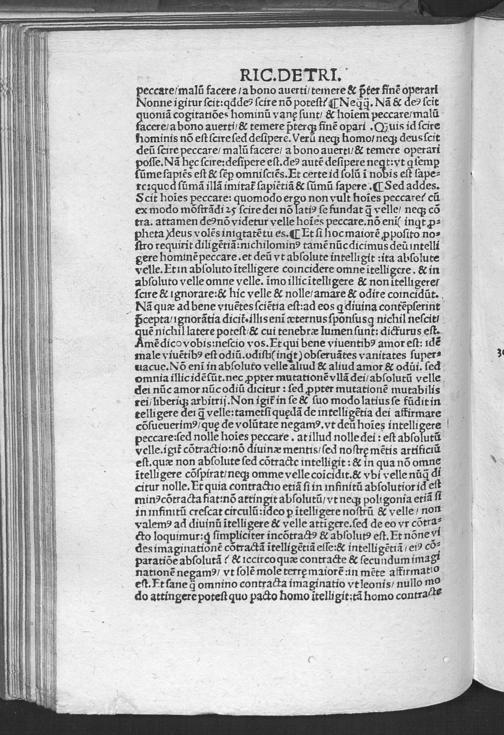 RIC.DETRI.
peccare/malū facere/a bono auerti/temere & p̄ter finē operari
Nonne igitur scit: qd deꝰ scire nō potest? ¶ Neq̄q̄. Nā & deꝰ scit
quoniā cogitatiōes hominū vanę sunt/& hoīem peccare/malū
facere/a bono auerti/& temere p̄terq̄ finē opari. Q̄uis id scire
hominis nō est scire sed desipere. Verū neq̨ homo/neq̨ deus scit
deū scire peccare/malū facere/a bono auerti/& temere operari
posse. Nā hęc scire: desipere est. deꝰ autē desipere neq̄t: vt q̄ semp
sūme sapiēs est & sēp omnisciēs. Et certe id solū ī nobis est sape-
re: quod sūmā illā imitat̄ sapiētiā & sūmū sapere. ¶ Sed addes.
Scit hoīes peccare: quomodo ergo non vult hoīes peccare? cū
ex modo mōstrādi scire dei nō latiꝰ se fundat q̄ velle/neq̨ cō
tra. attamen deꝰ nō videtur velle hoīes peccare. nō eni (inq̄t ,p-
pheta) deus volēs iniq̄tatē tu es. ¶ Et si hoc maiorē ,pposito no-
stro requirit diligētiā: nihilominꝰ tamē nūc dicimus deū intelli
gere hominē peccare. et deū vt absolute intelligit: ita absolute
velle. Et in absoluto ītelligere coincidere omne ītelligere. & in
absoluto velle omne velle. īmo illic ītelligere & non ītelligere/
scire & ignorare: & hic velle & nolle/amare & odire coincidūt.
Nā quæ ad bene viuētes sciētia est: ad eos q̄ diuina contēpserint
p̄cepta/ignorātia dicit̄. illis enī æternus sponsus q̄ nichil nescit/
quē nichil latere potest & cui tenebræ lumen sunt: dicturus est.
Amē dico vobis: nescio vos. Et qui bene viuentibꝰ amor est: idē
male viuētibꝰ est odiū. odisti (inq̄t) obseruātes vanitates super-
uacue. Nō enī in absoluto velle aliud & aliud amor & odiū. sed
omnia illic idē sūt. nec ,ppter mutationē vllā dei/absolutū velle
dei nūc amor nūc odiū dicitur: sed ,ppter mutationē mutabilis
rei/liberiq̨ arbitrij. Non igit̄ in se & suo modo latius se fūdit in
telligere dei q̄ velle: tametsi quędā de intelligētia dei affirmare
cōsueuerimꝰ/quę de volūtate negamꝰ. vt deū hoīes intelligere
peccare: sed nolle hoīes peccare. at illud nolle dei: est absolutū
velle. igit̄ cōtractio: nō diuinæ mentis/sed nostrę mētis artificiū
est. quæ non absolute sed cōtracte intelligit: & in qua nō omne
ītelligere cōspirat/neq̨ omne velle coīcidit. & vbi velle nūq̄ di
citur nolle. Et quia contractio etiā si in infinitū absolutior id est
minꝰ cōtracta fiat: nō attingit absolutū/vt neq̨ poligonia etiā si
in infinitū crescat circulū: ideo p ītelligere nostrū & velle/non
valemꝰ ad diuinū ītelligere & velle attīgere. sed de eo vt cōtra-
cto loquimur: q̄ simpliciter incōtractꝰ & absolutꝰ est. Et nōne vi
des imaginationē cōtractā ītelligētiā esse: & intelligētiā/eiꝰ cō-
paratiōe absolutā? & iccirco quæ contracte & secundum imagi
nationē negamꝰ/vt solē mole terrę maiorē: in mēte affirmatio
est. Et sane q̄ omnino contracta imaginatio vt leonis/nullo mo
do attingere potest quo pacto homo ītelligit: tā homo contracte